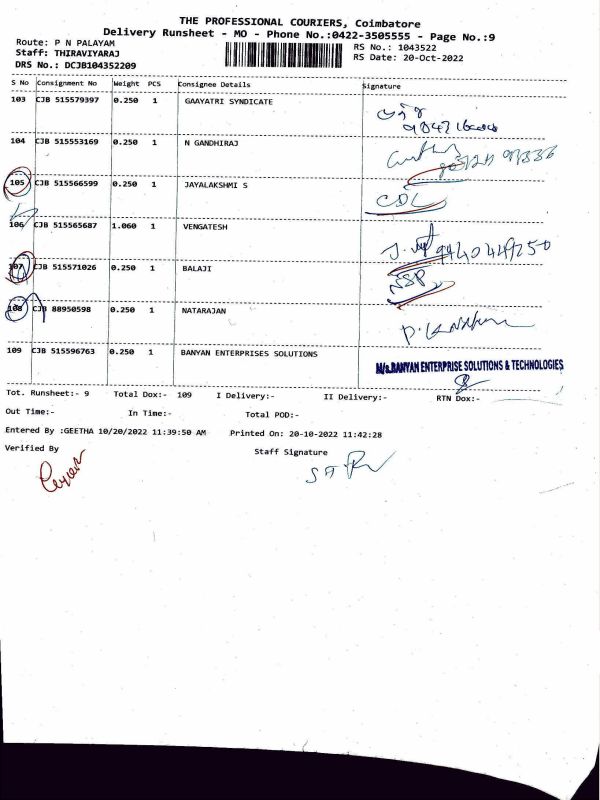 THE PROFESSIONAL COURIERS, Coimbatore
Delivery Runsheet - MO - Phone No.:0422-3505555 - Page No.:9
Route: P N PALAYAM
Staff: THIRAVIYARAJ
DRS No.: DCJB104352209
RS No.: 1043522
RS Date: 20-Oct-2022
S No Consignment No Weight PCS Consignee Details Signature
103 CJB 515579397 0.250 1 GAAYATRI SYNDICATE
104 CJB 515553169 0.250 1 N GANDHIRAJ
105 CJB 515566599 0.250 1 JAYALAKSHMI S CDL
106 CJB 515565687 1.060 1 VENGATESH
107 CJB 515571026 0.250 1 BALAJI
108 CJB 88950598 0.250 1 NATARAJAN
109 CJB 515596763 0.250 1 BANYAN ENTERPRISES SOLUTIONS
M/s.BANYAN ENTERPRISE SOLUTIONS & TECHNOLOGIES
Tot. Runsheet:- 9 Total Dox:- 109 I Delivery:- II Delivery:- RTN Dox:-
Out Time:- In Time:- Total POD:-
Entered By :GEETHA 10/20/2022 11:39:50 AM Printed On: 20-10-2022 11:42:28
Verified By Staff Signature